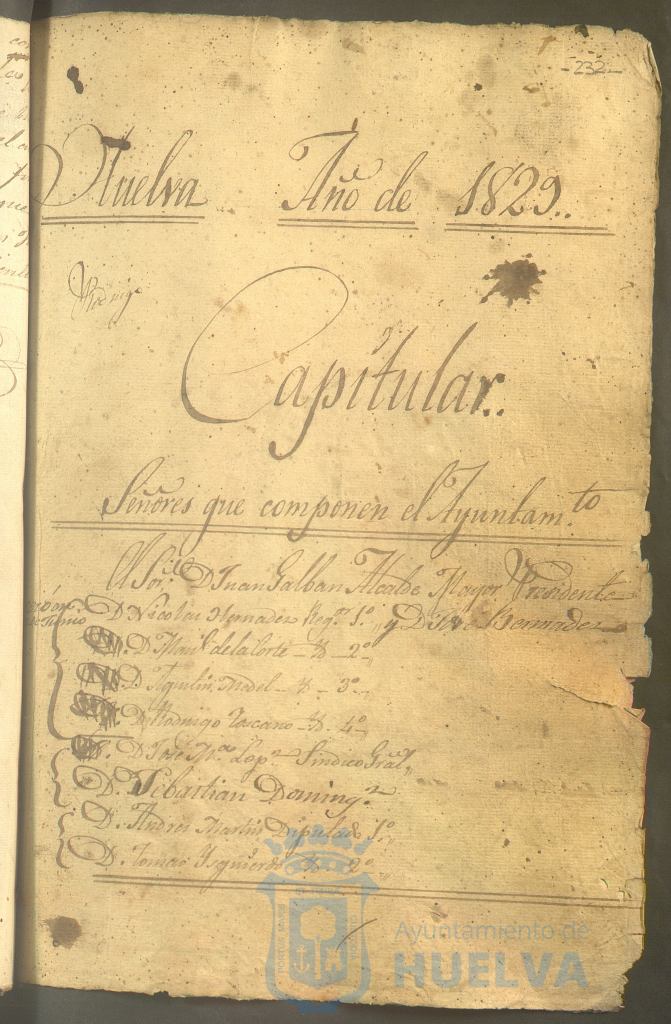 -232-
Huelva Año de 1829..
Rodrigo
Capitular..
Señores que componen el Ayuntam.to
El Sor. D Juan Galban Alcalde Mayor Presidente
D. Nicolas Hernadez Reg.r 1.o y D José Bermudez
D. Man.l de la Corte - Y - 2.o
D. Agustin Medel - Y - 3.o
D. Rodrigo Toscano - Y - 4.o
D. José M.a Lop.z Sindico Gral.
D. Sebastian Doming.z
D. Andres Martin Diputado 1.o
D. Tomas Yzquierdo - Y - 2.o
PORTUS MARIS
Ayuntamiento de
HUELVA